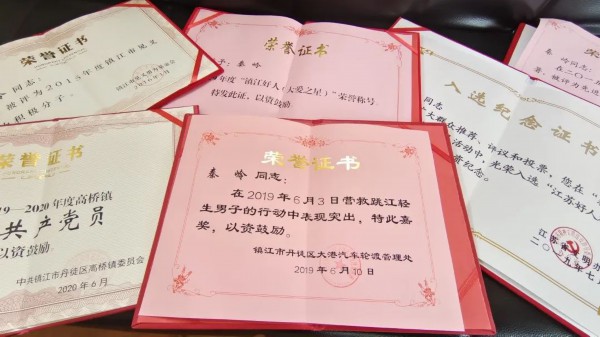 荣誉证书
同志:
被评为2018年度镇江市见义
积极分子。
荣誉证书
秦岭
年度"镇江好人(大爱之星)"荣誉称号,
特发此证,以资鼓励
入选纪念证书
同志
大群众推荐、评议和投票,您在"
活动中,光荣入选"江苏好人
二〇一九年七
荣誉证书
19-2020年度高桥镇
共产党员
以资鼓励
中共镇江市丹徒区高桥镇委员会
2020年6月
荣誉证书
秦岭 同志:
在2019年6月3日营救跳江轻
生男子的行动中表现突出,特此嘉
奖,以资鼓励。
镇江市丹徒区大港汽车轮渡管理处
2019年6月10日